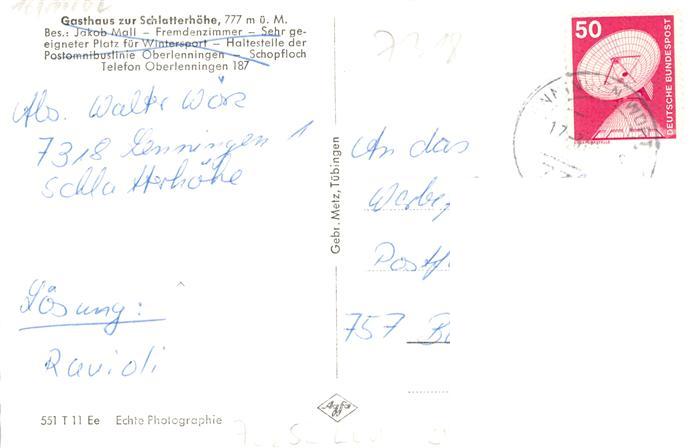 Gasthaus zur Schlatterhöhe, 777 m ü. M.
Bes.: Jakob Mall – Fremdenzimmer – Sehr ge-
eigneter Platz für Wintersport – Haltestelle der
Postomnibuslinie Oberlenningen – Schopfloch
Telefon Oberlenningen 187
Abs. Walter Wörz
7318 Lenningen 1
Schlatterhöhe
Lösung:
Ravioli
551 T 11 Ee Echte Photographie
Gebr. Metz, Tübingen
Agfa
50
DEUTSCHE BUNDESPOST
An das
Werbe
Postf
757 B